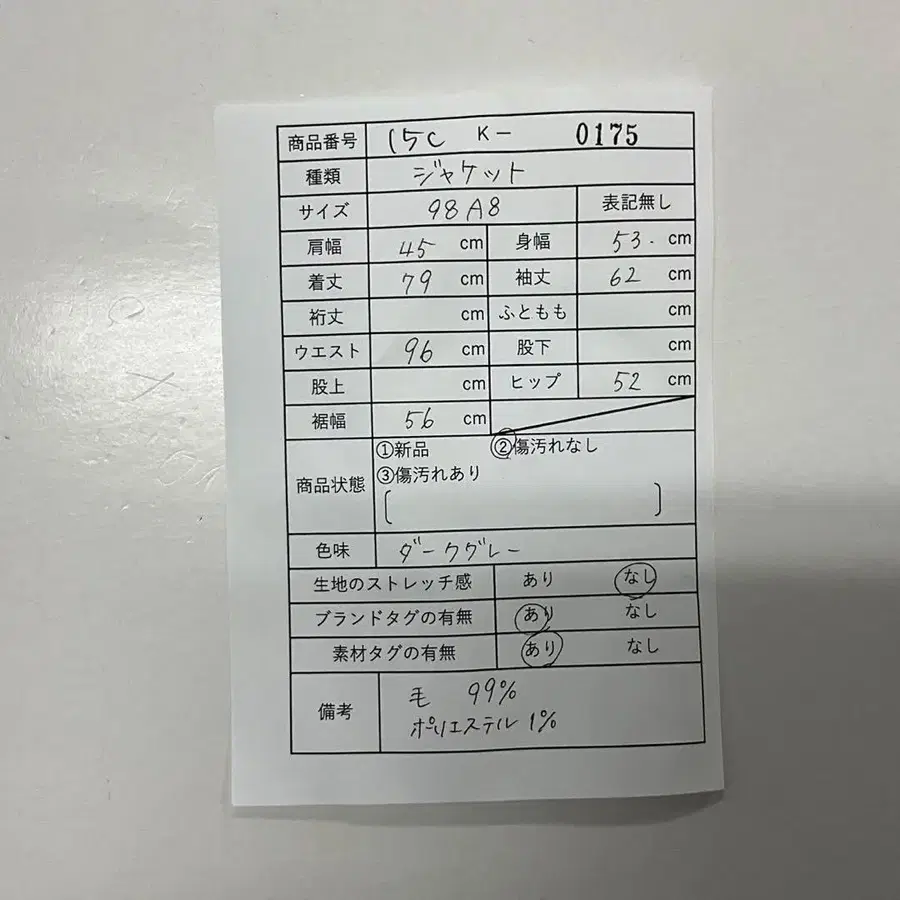 商品番号 15C K- 0175
種類 ジャケット
サイズ 98A8 表記無し
肩幅 45 cm 身幅 53. cm
着丈 79 cm 袖丈 62 cm
裄丈 cm ふともも cm
ウエスト 96 cm 股下 cm
股上 cm ヒップ 52 cm
裾幅 56 cm
商品状態 ①新品 ②傷汚れなし
③傷汚れあり
[ ]
色味 ダークグレー
生地のストレッチ感 あり なし
ブランドタグの有無 あり なし
素材タグの有無 あり なし
備考 毛 99%
ポリエステル 1%